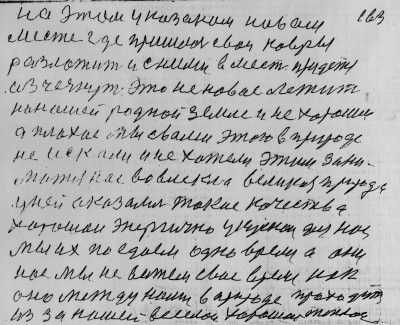 на этом указаном новам 163
месте где пришлось свои ковры
разложить и сними вмест придетя
исчезнут. Это не новае летит
на нашей родной земле и не хорошии
а плохае мы свами этого в природе
не искали и не хотели этим зани-
матя нас вовлекла великая природа
у ней оказались такие качества
хорошаи энергично
мы их поедаем одно время а они
нас мы не ведем свае время как
оно между нами в природе проходит
из за нашей веселой хорошои